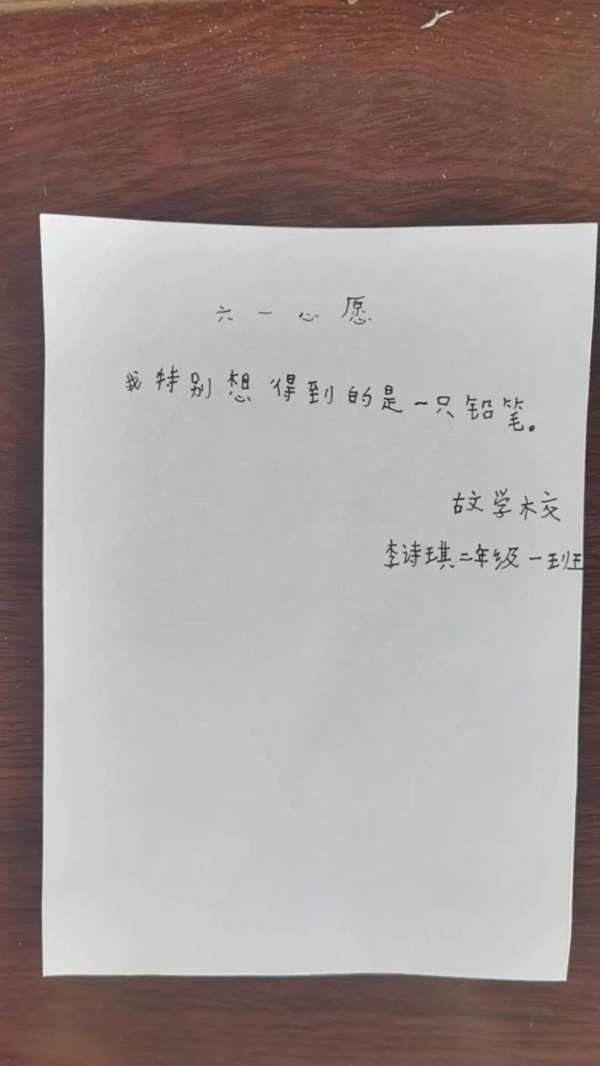 六一心愿
我特别想得到的是一只铅笔。
故学校
李诗琪二年级一班